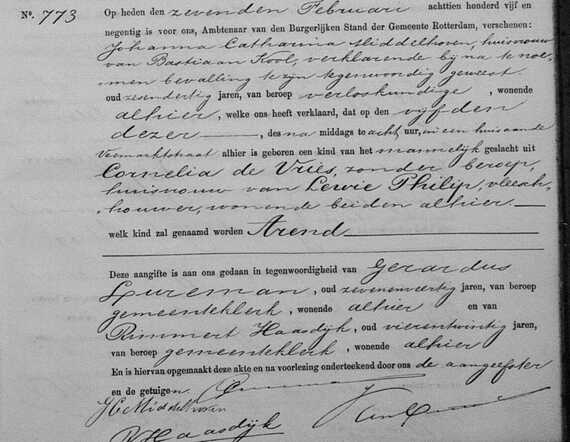 No. 773
Op heden den zevenden Februari achttien honderd vijf en
negentig is voor ons, Ambtenaar van den Burgerlijken Stand der Gemeente Rotterdam, verschenen:
Johanna Catharina Middelhoven, huisvrouw
van Bastiaan Kool, verklarende bij na te noe-
men bevalling te zijn tegenwoordig geweest
oud zesendertig jaren, van beroep verloskundige, wonende
alhier, welke ons heeft verklaard, dat op den vijfden
dezer, des na middags te acht uur, in een huis aan de
Vemarktstraat alhier is geboren een kind van het mannelijk geslacht uit
Cornelia de Vries, zonder beroep,
huisvrouw van Lewie Philip, vleesch-
houwer, wonende beiden alhier
welk kind zal genaamd worden Arend
Deze aangifte is aan ons gedaan in tegenwoordigheid van Gerardus
Lureman, oud zevenenveertig jaren, van beroep
gemeenteklerk, wonende alhier en van
Rimmert Haasdijk, oud vierentwintig jaren,
van beroep gemeenteklerk, wonende alhier
En is hiervan opgemaakt deze akte en na voorlezing onderteekend door ons de aangeefster
en de getuigen.
JCMiddelhoven
RHaasdijk